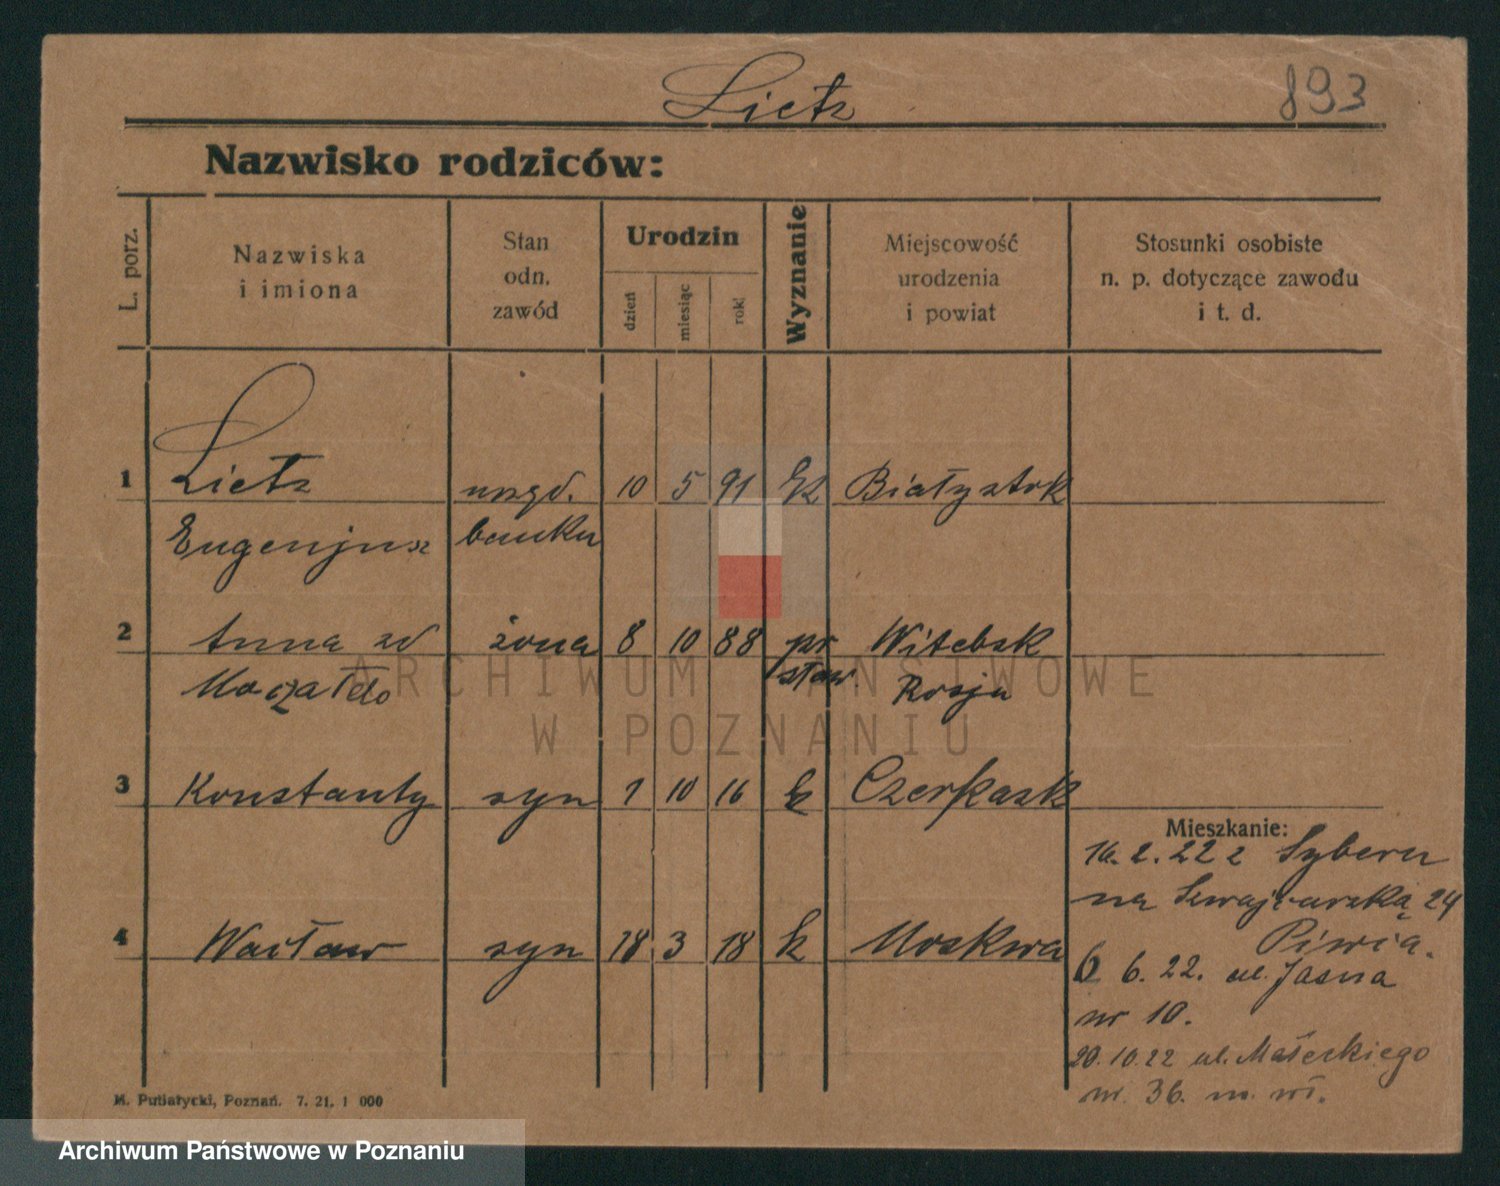 Lietz
893
Nazwisko rodziców:
L. porz.
Nazwiska
i imiona
Stan
odn.
zawód
Urodzin
dzień
miesiąc
rok
Wyznanie
Miejscowość
urodzenia
i powiat
Stosunki osobiste
n. p. dotyczące zawodu
i t. d.
1 Lietz urzęd. 10 5 91 Białystok
Eugenjusz banku
2 Anna zd żona 8 10 88 pr Witebsk
sław Rosja
3 Konstanty syn 1 10 16 k Czerkask
Mieszkanie:
16. 2. 22 z Syberii
na Szwajcarską 24
4 Wacław syn 18 3 18 k Moskwa
Piwia.
6 6. 22. ul. Jasna
nr 10.
20. 10. 22 ul. Małeckiego
nr. 36. m. wł.
M. Putiatycki, Poznań. 7. 21. 1 000
ARCHIWUM PAŃSTWOWE
W POZNANIU
Archiwum Państwowe w Poznaniu